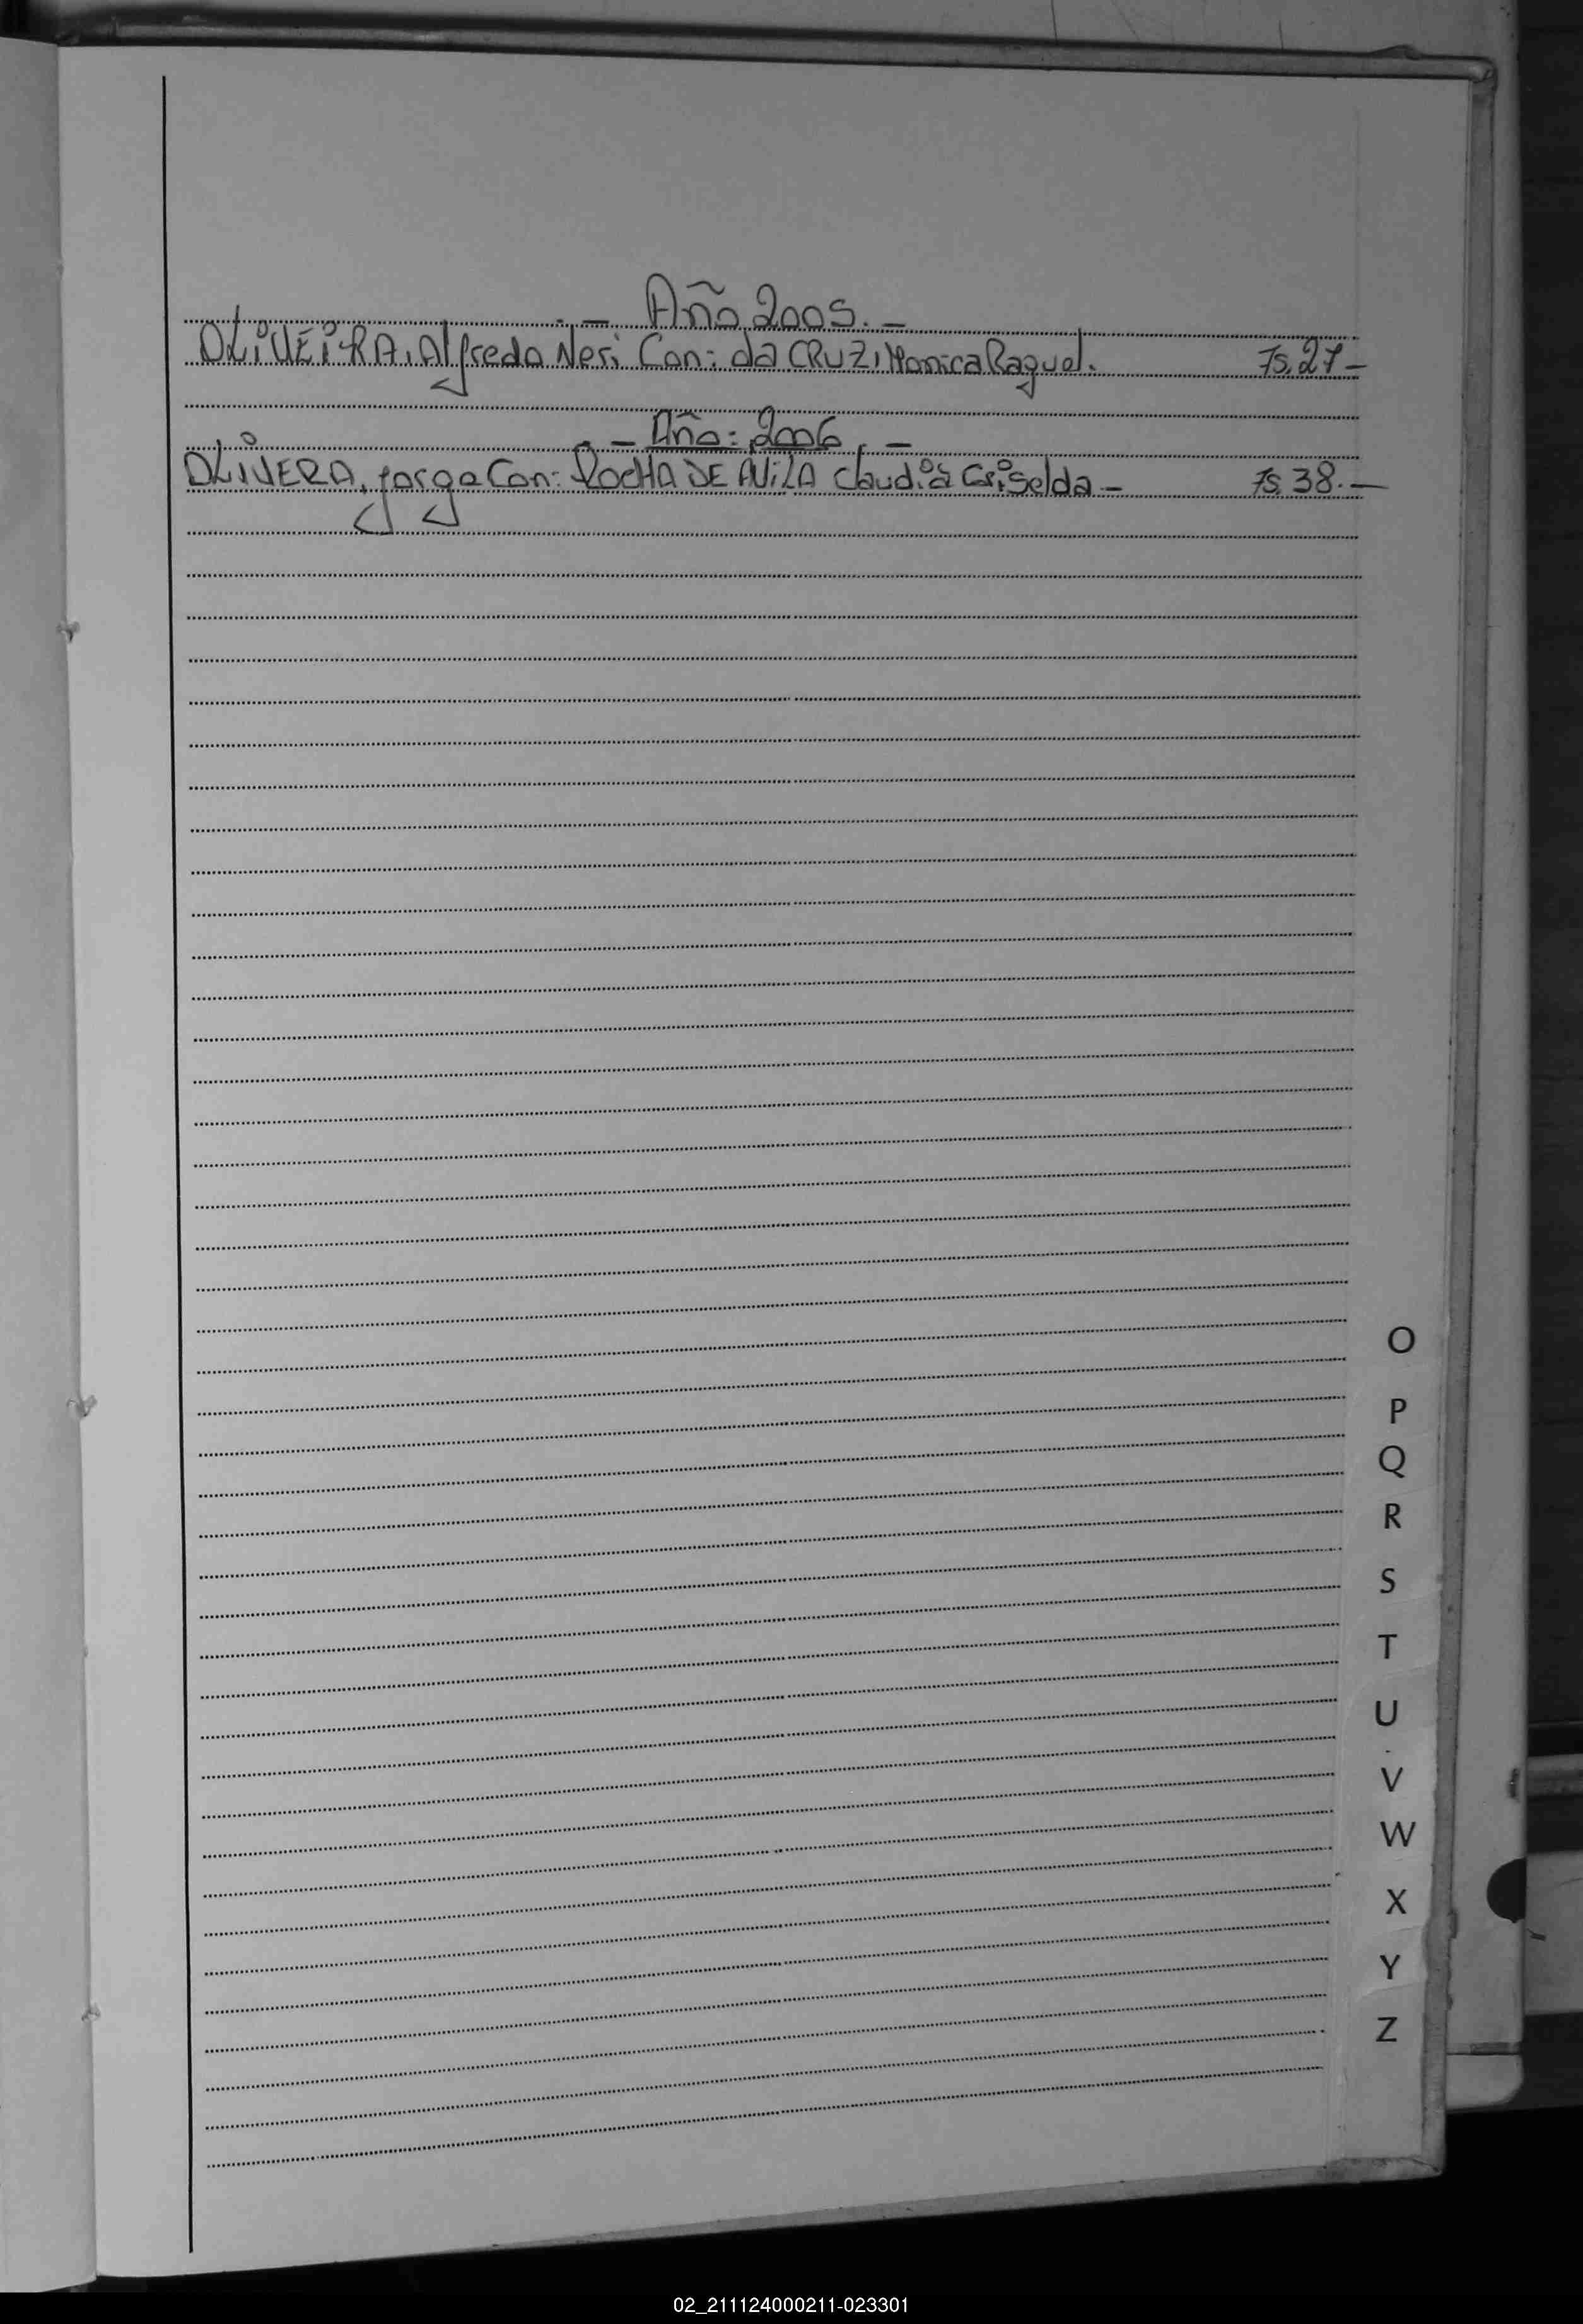 .- Año 2005.-
OLiVEiRA, Alfredo Neri Con: da CRUZ, Monica Raquel. Fs. 27-
.- Año: 2006.-
OLiVERA, jorge Con: ROCHA DE AViLA Claudia Griselda- Fs. 38.-
O
P
Q
R
S
T
U
V
W
X
Y
Z
02_211124000211-023301